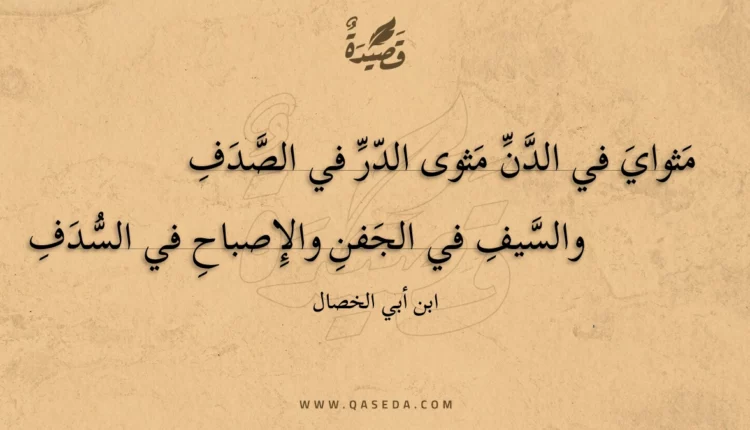 قَصِيْدَةٌ
مَثوايَ في الدَّنِّ مَثوى الدّرِّ في الصَّدَفِ
والسَّيفِ في الجَفنِ والإِصباحِ في السُّدَفِ
ابن أبي الخصال
WWW.QASEDA.COM